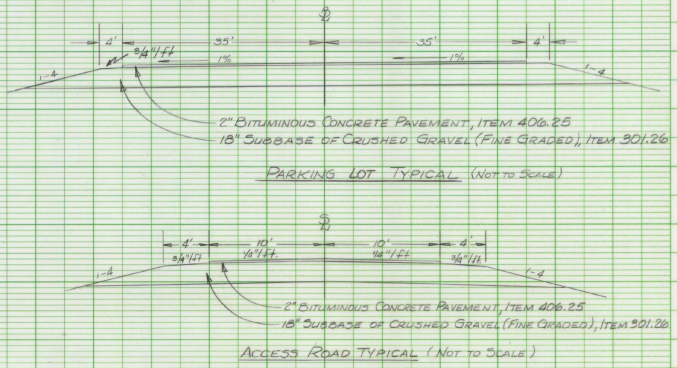 ℄
4' 35' 35' 4'
3/4"/ft
1% 1%
1-4 1-4
2" BITUMINOUS CONCRETE PAVEMENT, ITEM 406.25
18" SUBBASE OF CRUSHED GRAVEL (FINE GRADED), ITEM 301.26
PARKING LOT TYPICAL (NOT TO SCALE)
℄
4' 10' 10' 4'
3/4"/ft 1/4"/ft. 1/4"/ft 3/4"/ft
1-4 1-4
2" BITUMINOUS CONCRETE PAVEMENT, ITEM 406.25
18" SUBBASE OF CRUSHED GRAVEL (FINE GRADED), ITEM 301.26
ACCESS ROAD TYPICAL (NOT TO SCALE)